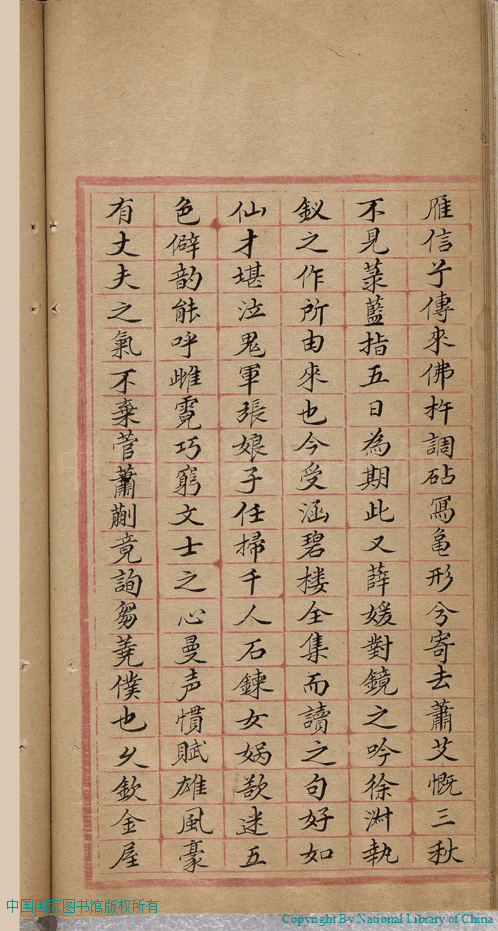 雁信兮傳來佛杵調砧寫龜形兮寄去蕭艾慨三秋
不見菉藍指五日為期此又薛媛對鏡之吟徐淑執
釵之作所由來也今受涵碧楼全集而讀之句好如
仙才堪泣鬼軍張娘子任掃千人石鍊女媧欲迷五
色僻韵能呼雌霓巧窮文士之心曼声慣賦雄風豪
有丈夫之氣不棄菅蕭蒯竟詢芻蕘僕也久欽金屋
中国国家图书馆版权所有
Copyright By National Library of China